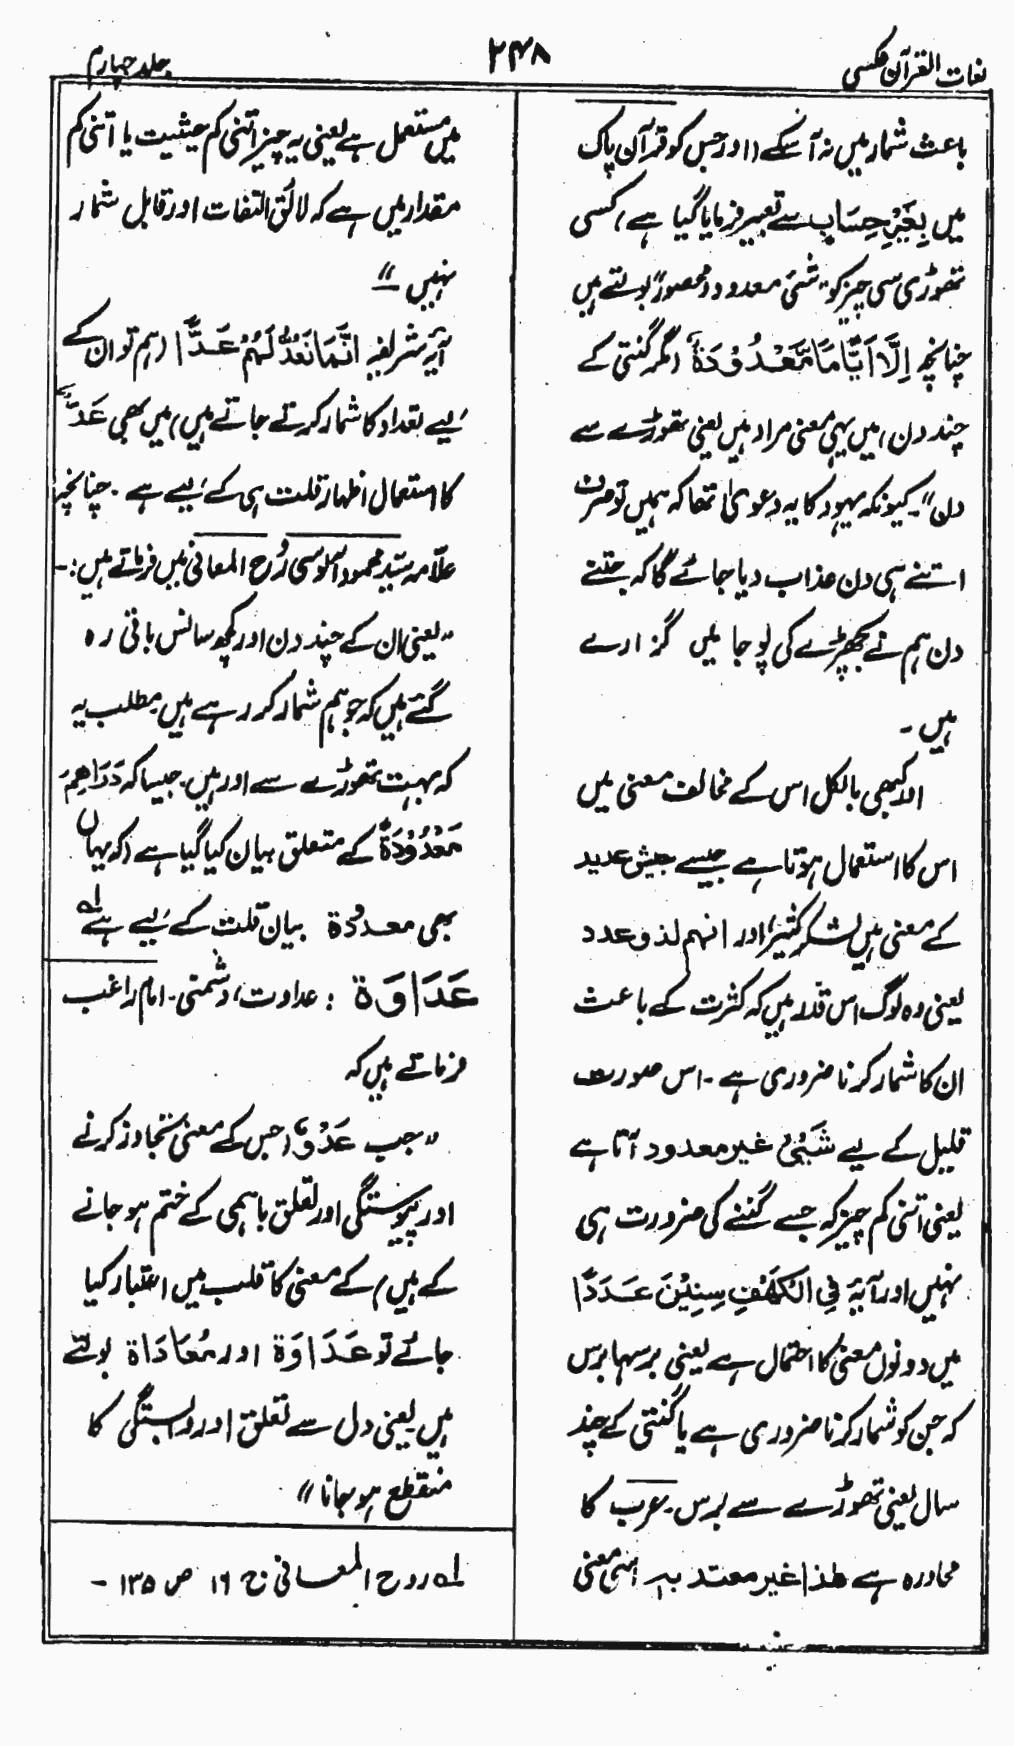 لغات القرآن عکسی
۲۴۸
جلد چہارم
باعث شمار میں نہ آسکے (اور جس کو قرآن پاک
میں بِغَيْرِ حِسَابٍ سے تعبیر فرمایا گیا ہے، کسی
تھوڑی سی چیز کو "شئی معدود و محصور" بولتے ہیں
چنانچہ اِلَّا اَيَّامًا مَّعْدُوْدَةً (مگر گنتی کے
چند دن) میں یہی معنی مراد ہیں یعنی تھوڑے سے
دن"۔ کیونکہ یہود کا یہ دعویٰ تھا کہ ہمیں تو صرف
اتنے ہی دن عذاب دیا جائے گا کہ جتنے
دن ہم نے بچھڑے کی پوجا میں گزارے
ہیں ۔
اور کبھی بالکل اس کے مخالف معنی میں
اس کا استعمال ہوتا ہے جیسے جیش عدید
کے معنی ہیں لشکر کثیر، اور انہم لذو عدد
یعنی وہ لوگ اس قدر ہیں کہ کثرت کے باعث
ان کا شمار کرنا ضروری ہے ۔ اس صورت
قلیل کے لیے شَيْئٌ غیر معدود آتا ہے
یعنی اتنی کم چیز کہ جسے گننے کی ضرورت ہی
نہیں اور آیہ فِي الْكَهْفِ سِنِيْنَ عَدَدًا
میں دونوں معنی کا احتمال ہے یعنی برسہا برس
کہ جن کو شمار کرنا ضروری ہے یا گنتی کے چند
سال یعنی تھوڑے سے برس۔ عرب کا
محاورہ ہے ھذا غیر معتد بہ اسی معنی
میں مستعمل ہے یعنی یہ چیز اتنی کم حیثیت یا اتنی کم
مقدار میں ہے کہ لائق التفات اور قابل شمار
نہیں "
آیۂ شریفہ اِنَّمَا نَعُدُّ لَهُمْ عَدًّا (ہم تو ان کے
لیے تعداد کا شمار کرتے جاتے ہیں) میں بھی عَدّ
کا استعمال اظہار قلت ہی کے لیے ہے ۔ چنانچہ
علامہ سید محمود آلوسی رُوح المعانی میں فرماتے ہیں:-
"یعنی ان کے چند دن اور کچھ سانس باقی رہ
گئے ہیں کہ جو ہم شمار کر رہے ہیں۔ مطلب یہ
کہ بہت تھوڑے سے اور ہیں۔ جیسا کہ دَرَاهِمَ
مَعْدُوْدَةً کے متعلق بیان کیا گیا ہے (کہ یہاں
بھی معدودۃ بیان قلت کے لیے ہے لہ
عَدَاوَة : عداوت، دشمنی۔ امام راغب
فرماتے ہیں کہ
"جب عَدْوٌ (جس کے معنی تجاوز کرنے
اور پیوستگی اور تعلق باہمی کے ختم ہو جانے
کے ہیں) کے معنی کا قلب میں اعتبار کیا
جائے تو عَدَاوَة اور مُعَادَاة بولتے
ہیں۔ یعنی دل سے تعلق اور وابستگی کا
منقطع ہو جانا "
لہ روح المعانی ج ۱۶ ص ۱۳۵ -